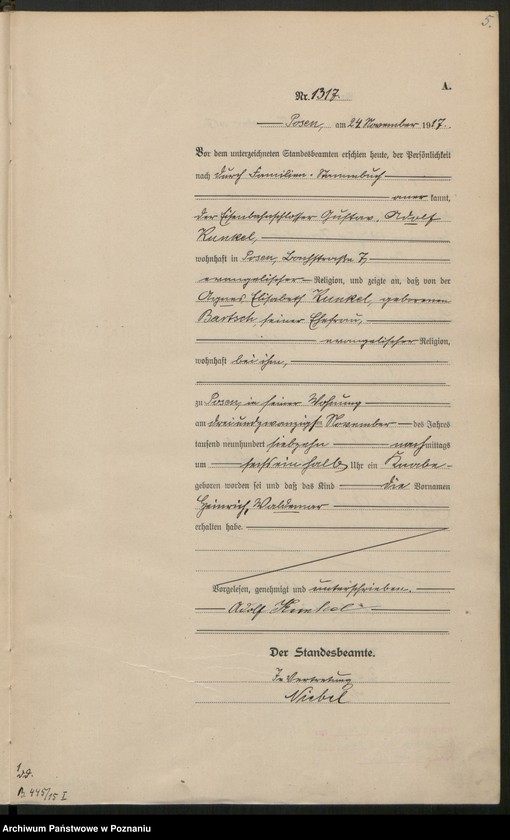 5.
A.
Nr. 1317.
Posen, am 24 November 1917.
Vor dem unterzeichneten Standesbeamten erschien heute, der Persönlichkeit
nach durch Familien-Stammbuch
aner kannt,
der Eisenbahnschlosser Gustav, Adolf
Kunkel,
wohnhaft in Posen, Bachstraße 7,
evangelischer Religion, und zeigte an, daß von der
Agnes Elisabeth Kunkel, geborenen
Bartsch, seiner Ehefrau,
evangelischer Religion,
wohnhaft bei ihm,
zu Posen, in seiner Wohnung
am dreiundzwanzigsten November des Jahres
tausend neunhundert siebzehn nachmittags
um sechseinhalb Uhr ein Knabe
geboren worden sei und daß das Kind die Vornamen
Heinrich, Waldemar
erhalten habe.
Vorgelesen, genehmigt und unterschrieben.
Adolf Kunkel
Der Standesbeamte.
In Vertretung
Niebel
B. 445/15 I
Archiwum Państwowe w Poznaniu